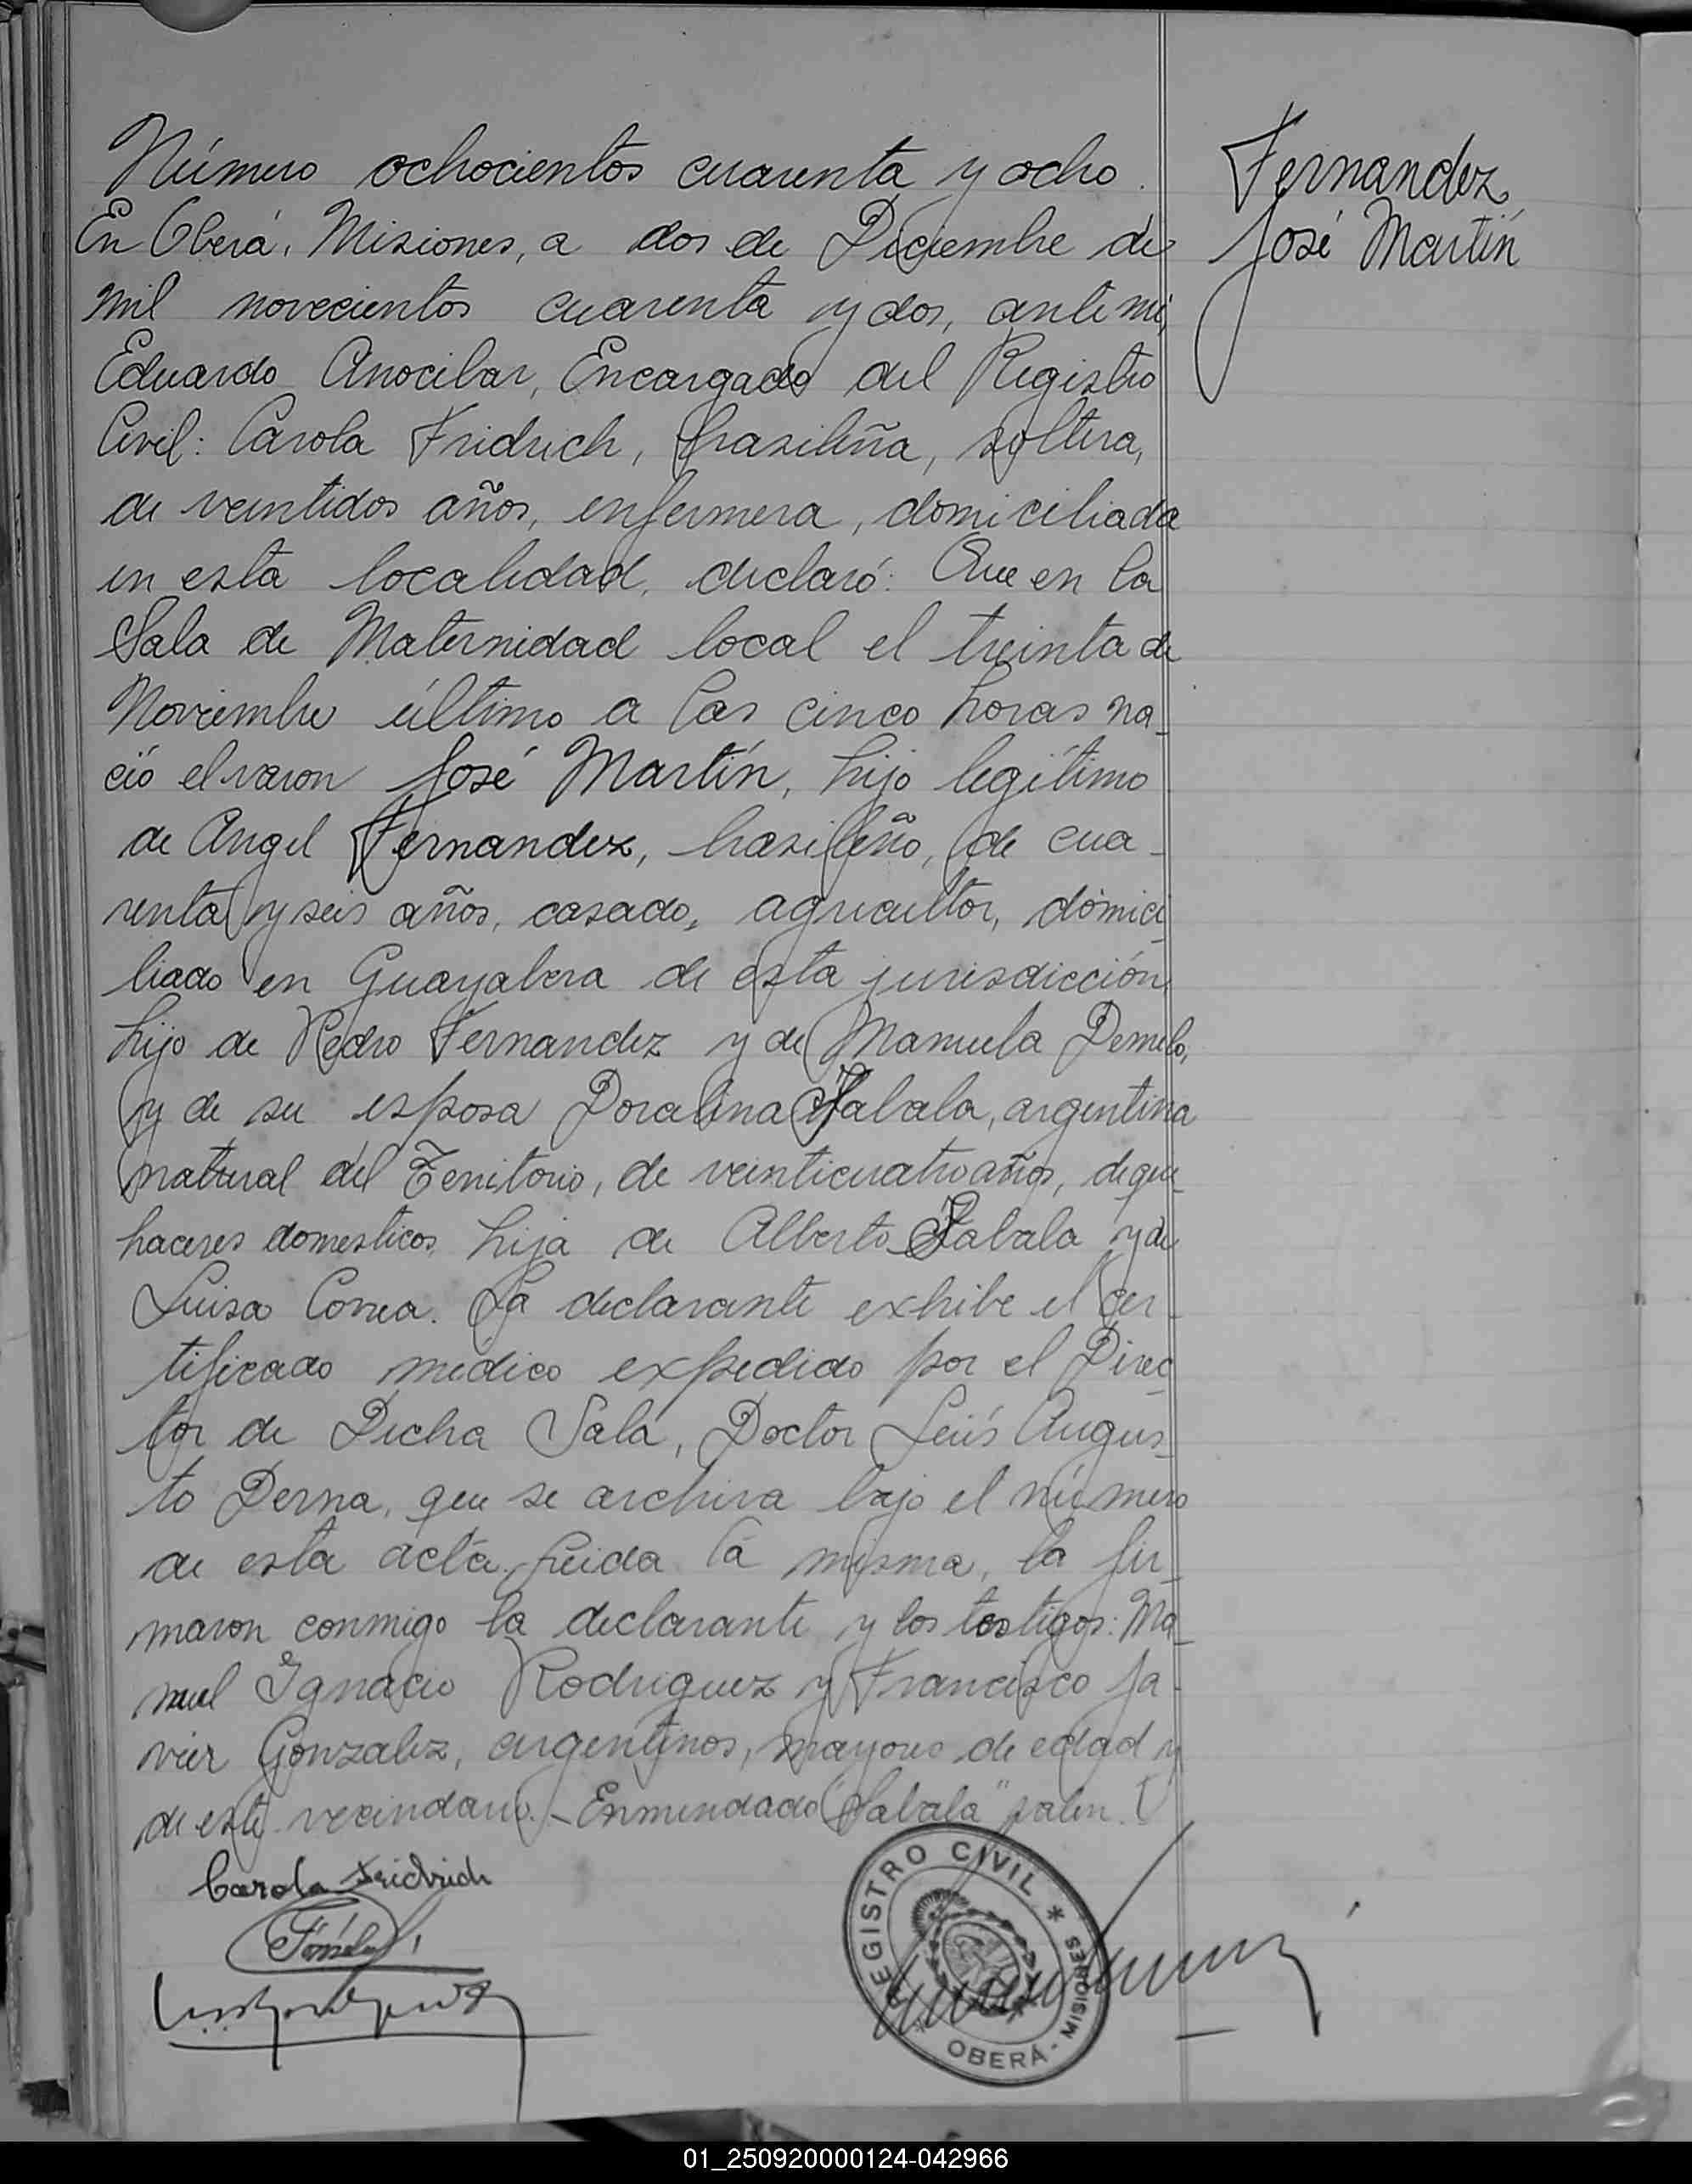 Número ochocientos cuarenta y ocho.
Fernandez
José Martín
En Oberá, Misiones, a dos de Diciembre de
mil novecientos cuarenta y dos, ante mí,
Eduardo Anocibar, Encargado del Registro
Civil: Carola Fridrich, brasileña, soltera,
de veintidos años, enfermera, domiciliada
en esta localidad, declaró: Que en la
Sala de Maternidad local el treinta de
Noviembre último a las cinco horas na-
ció el varon José Martín, hijo legítimo
de Angel Fernandez, brasileño, de cua-
renta y seis años, casado, agricultor, domici-
liado en Guayabera de esta jurisdicción,
hijo de Pedro Fernandez y de Manuela Demelo,
y de su esposa Doralina Sabala, argentina
natural del Territorio, de veinticuatro años, de que-
haceres domesticos, hija de Alberto Sabala y de
Luisa Correa. La declarante exhibe el cer-
tificado medico expedido por el Direc-
tor de Dicha Sala, Doctor Luis Augus-
to Derna, que se archiva bajo el número
de esta acta. Leida la misma, la fir-
maron conmigo la declarante y los testigos: Ma-
nuel Ignacio Rodriguez y Francisco Ja-
vier Gonzalez, argentinos, mayores de edad y
de este vecindario.- Enmendado "Sabala" valen.
Carola Fridrich
REGISTRO CIVIL * MISIONES
* OBERÁ -
01_250920000124-042966